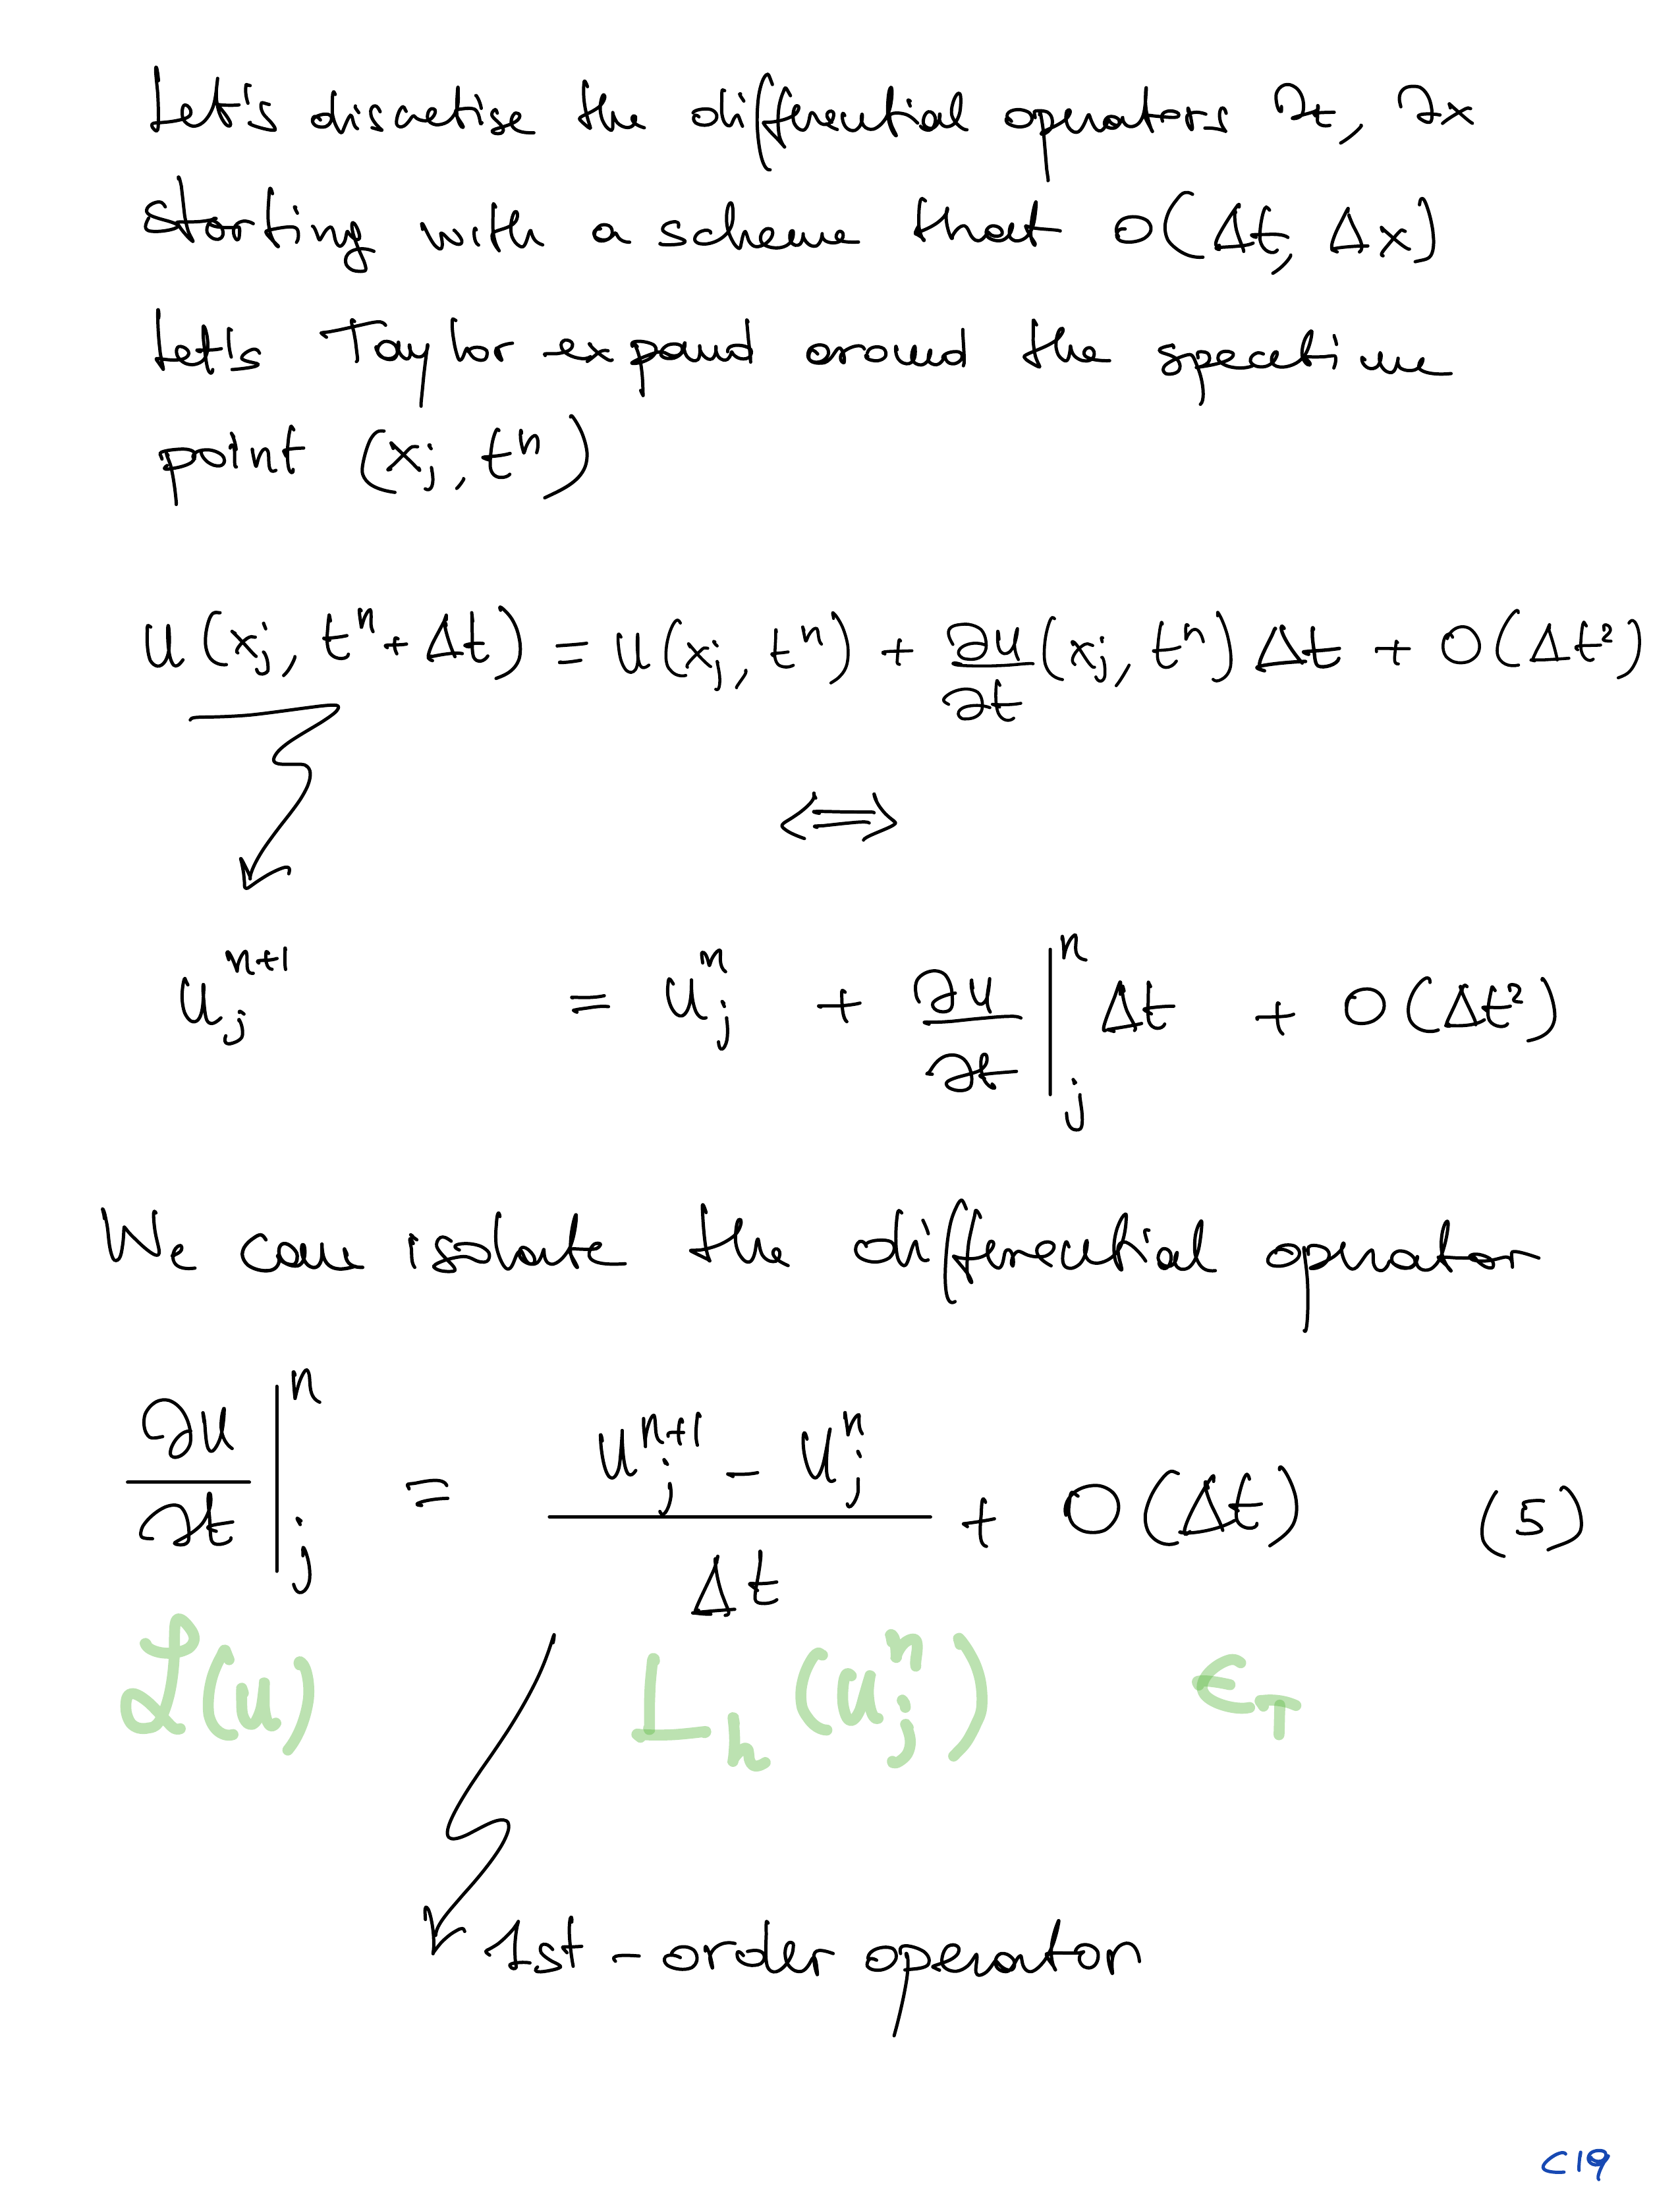 Let's discretise the differential operators ∂t, ∂x
starting with a scheme that O(Δt, Δx)
Let's Taylor expand around the spacetime
point (xj, t^n)
u(xj, t^n + Δt) = u(xj, t^n) + ∂u/∂t (xj, t^n) Δt + O(Δt²)
⟺
u_j^{n+1} = u_j^n + ∂u/∂t |_j^n Δt + O(Δt²)
We can isolate the differential operator
∂u/∂t |_j^n = (u_j^{n+1} - u_j^n)/Δt + O(Δt) (5)
ℒ(u) L_h(u_j^n) ϵ_T
1st-order operator
C19